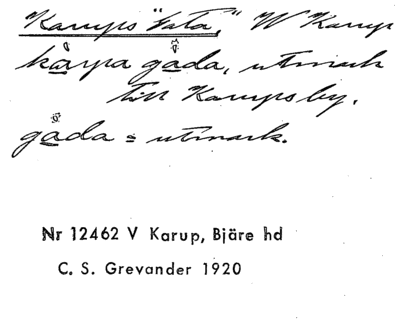 Karups "Gata," W Karup
kårpa gåda, utmark
till Karups by.
gåda = utmark.
Nr 12462 V Karup, Bjäre hd
C. S. Grevander 1920